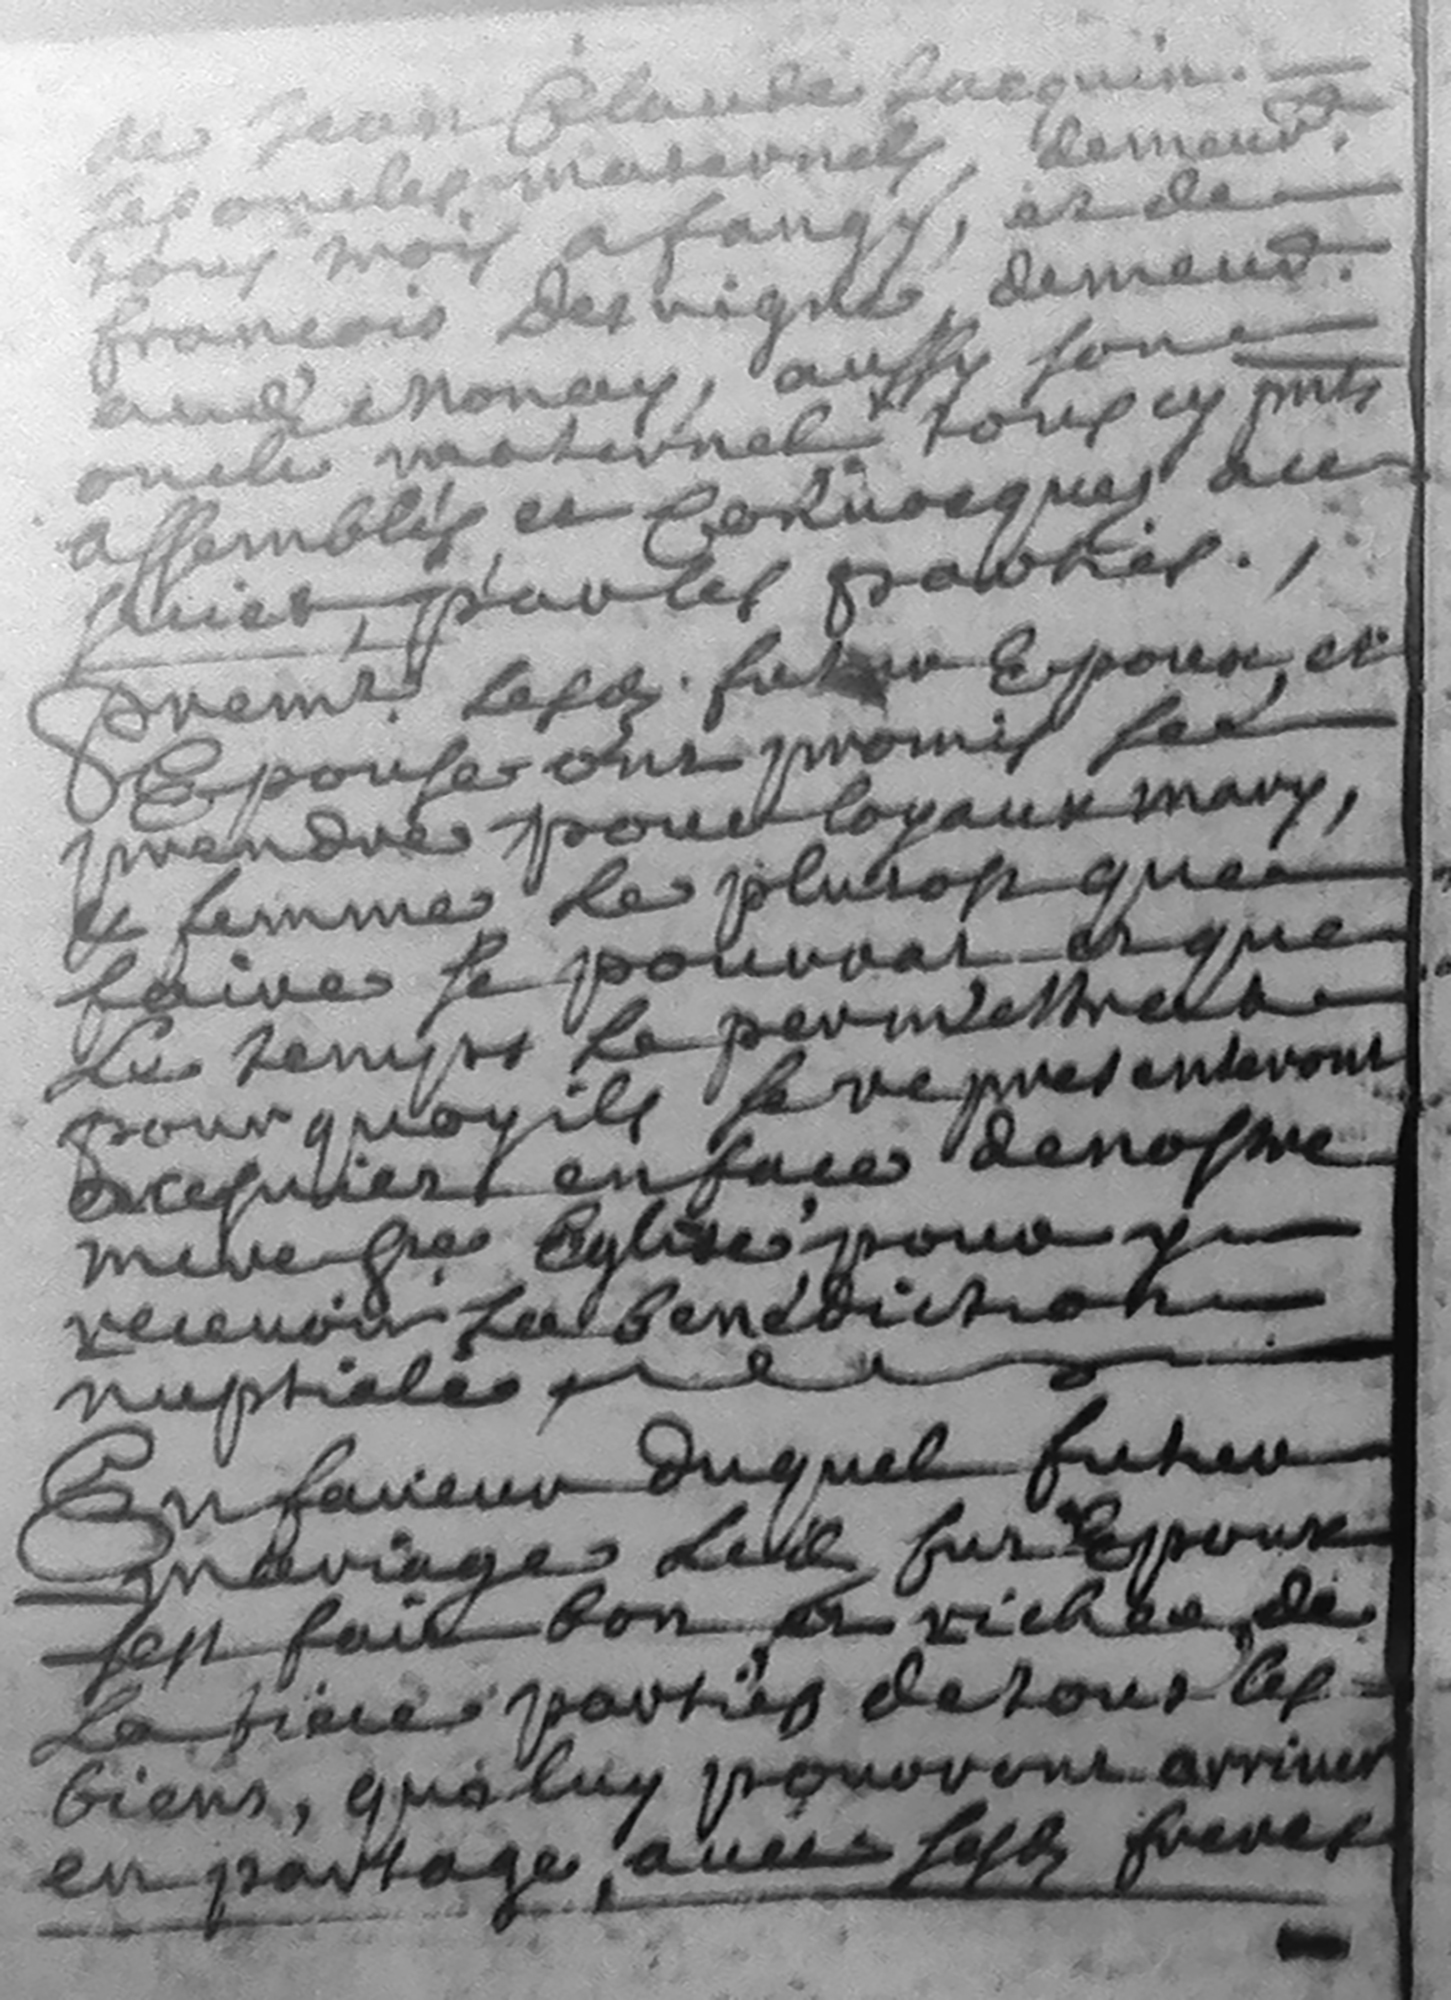 de Jean Claude Jacquin.
ses oncles maternels, demeurt.
tous trois a fangy, et de
francois Desvigne, demeurt.
aud. Monay, aussy son
oncle maternel tous cy pnts
assemblés et Convocqués au
suiet, par les parties.
Premt. Lesd. futur Epoux, et
Epouse ont promis se
prendre pour loyaux mary,
et femme le plutost que
faire se pourrat et que
le temps le permettrat
pourquoy ils se representeront
en face de nostre
mere ste Eglise pour y
recevoir La benédiction
nuptiale
En faveur duquel futur
mariage Led. fut Epoux
sest fait bon et riche de
La partie de tout les
biens, qui luy pourront arriver
en partage, avec sesd. freres